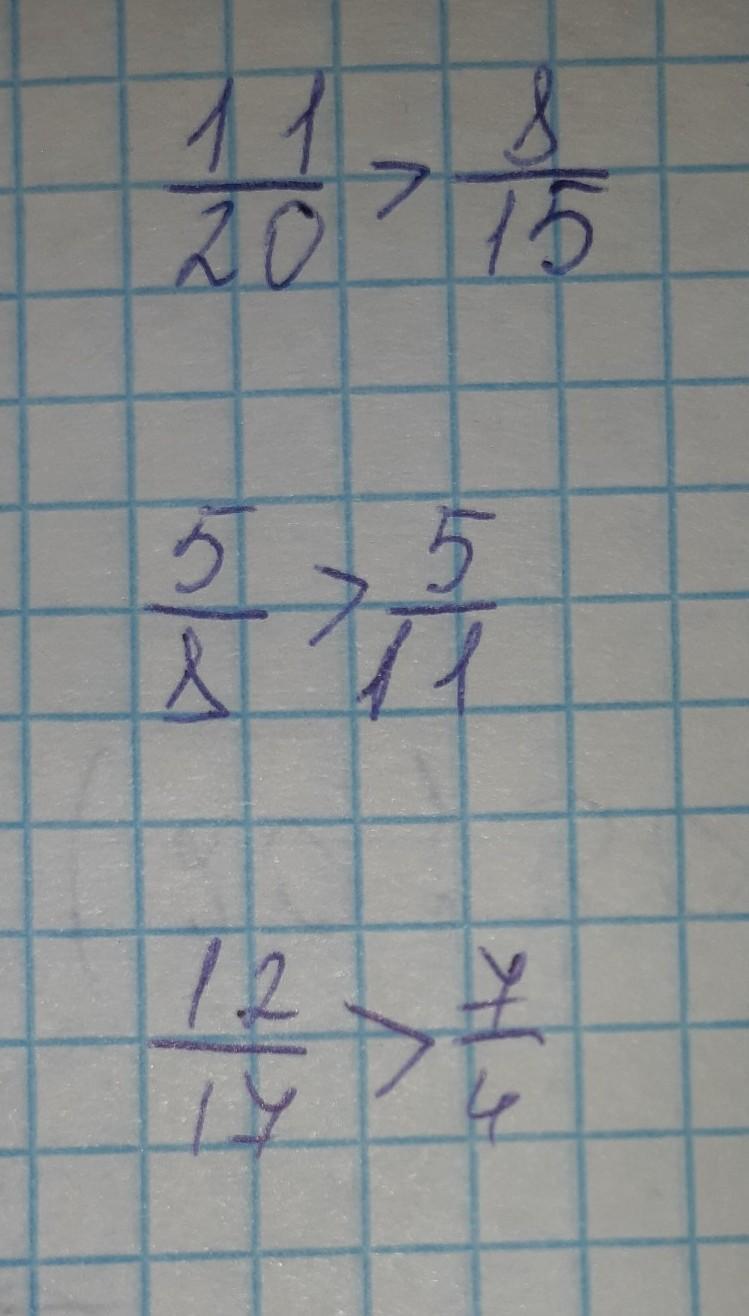 11/20 > 8/15
5/8 > 5/11
12/17 > 7/4